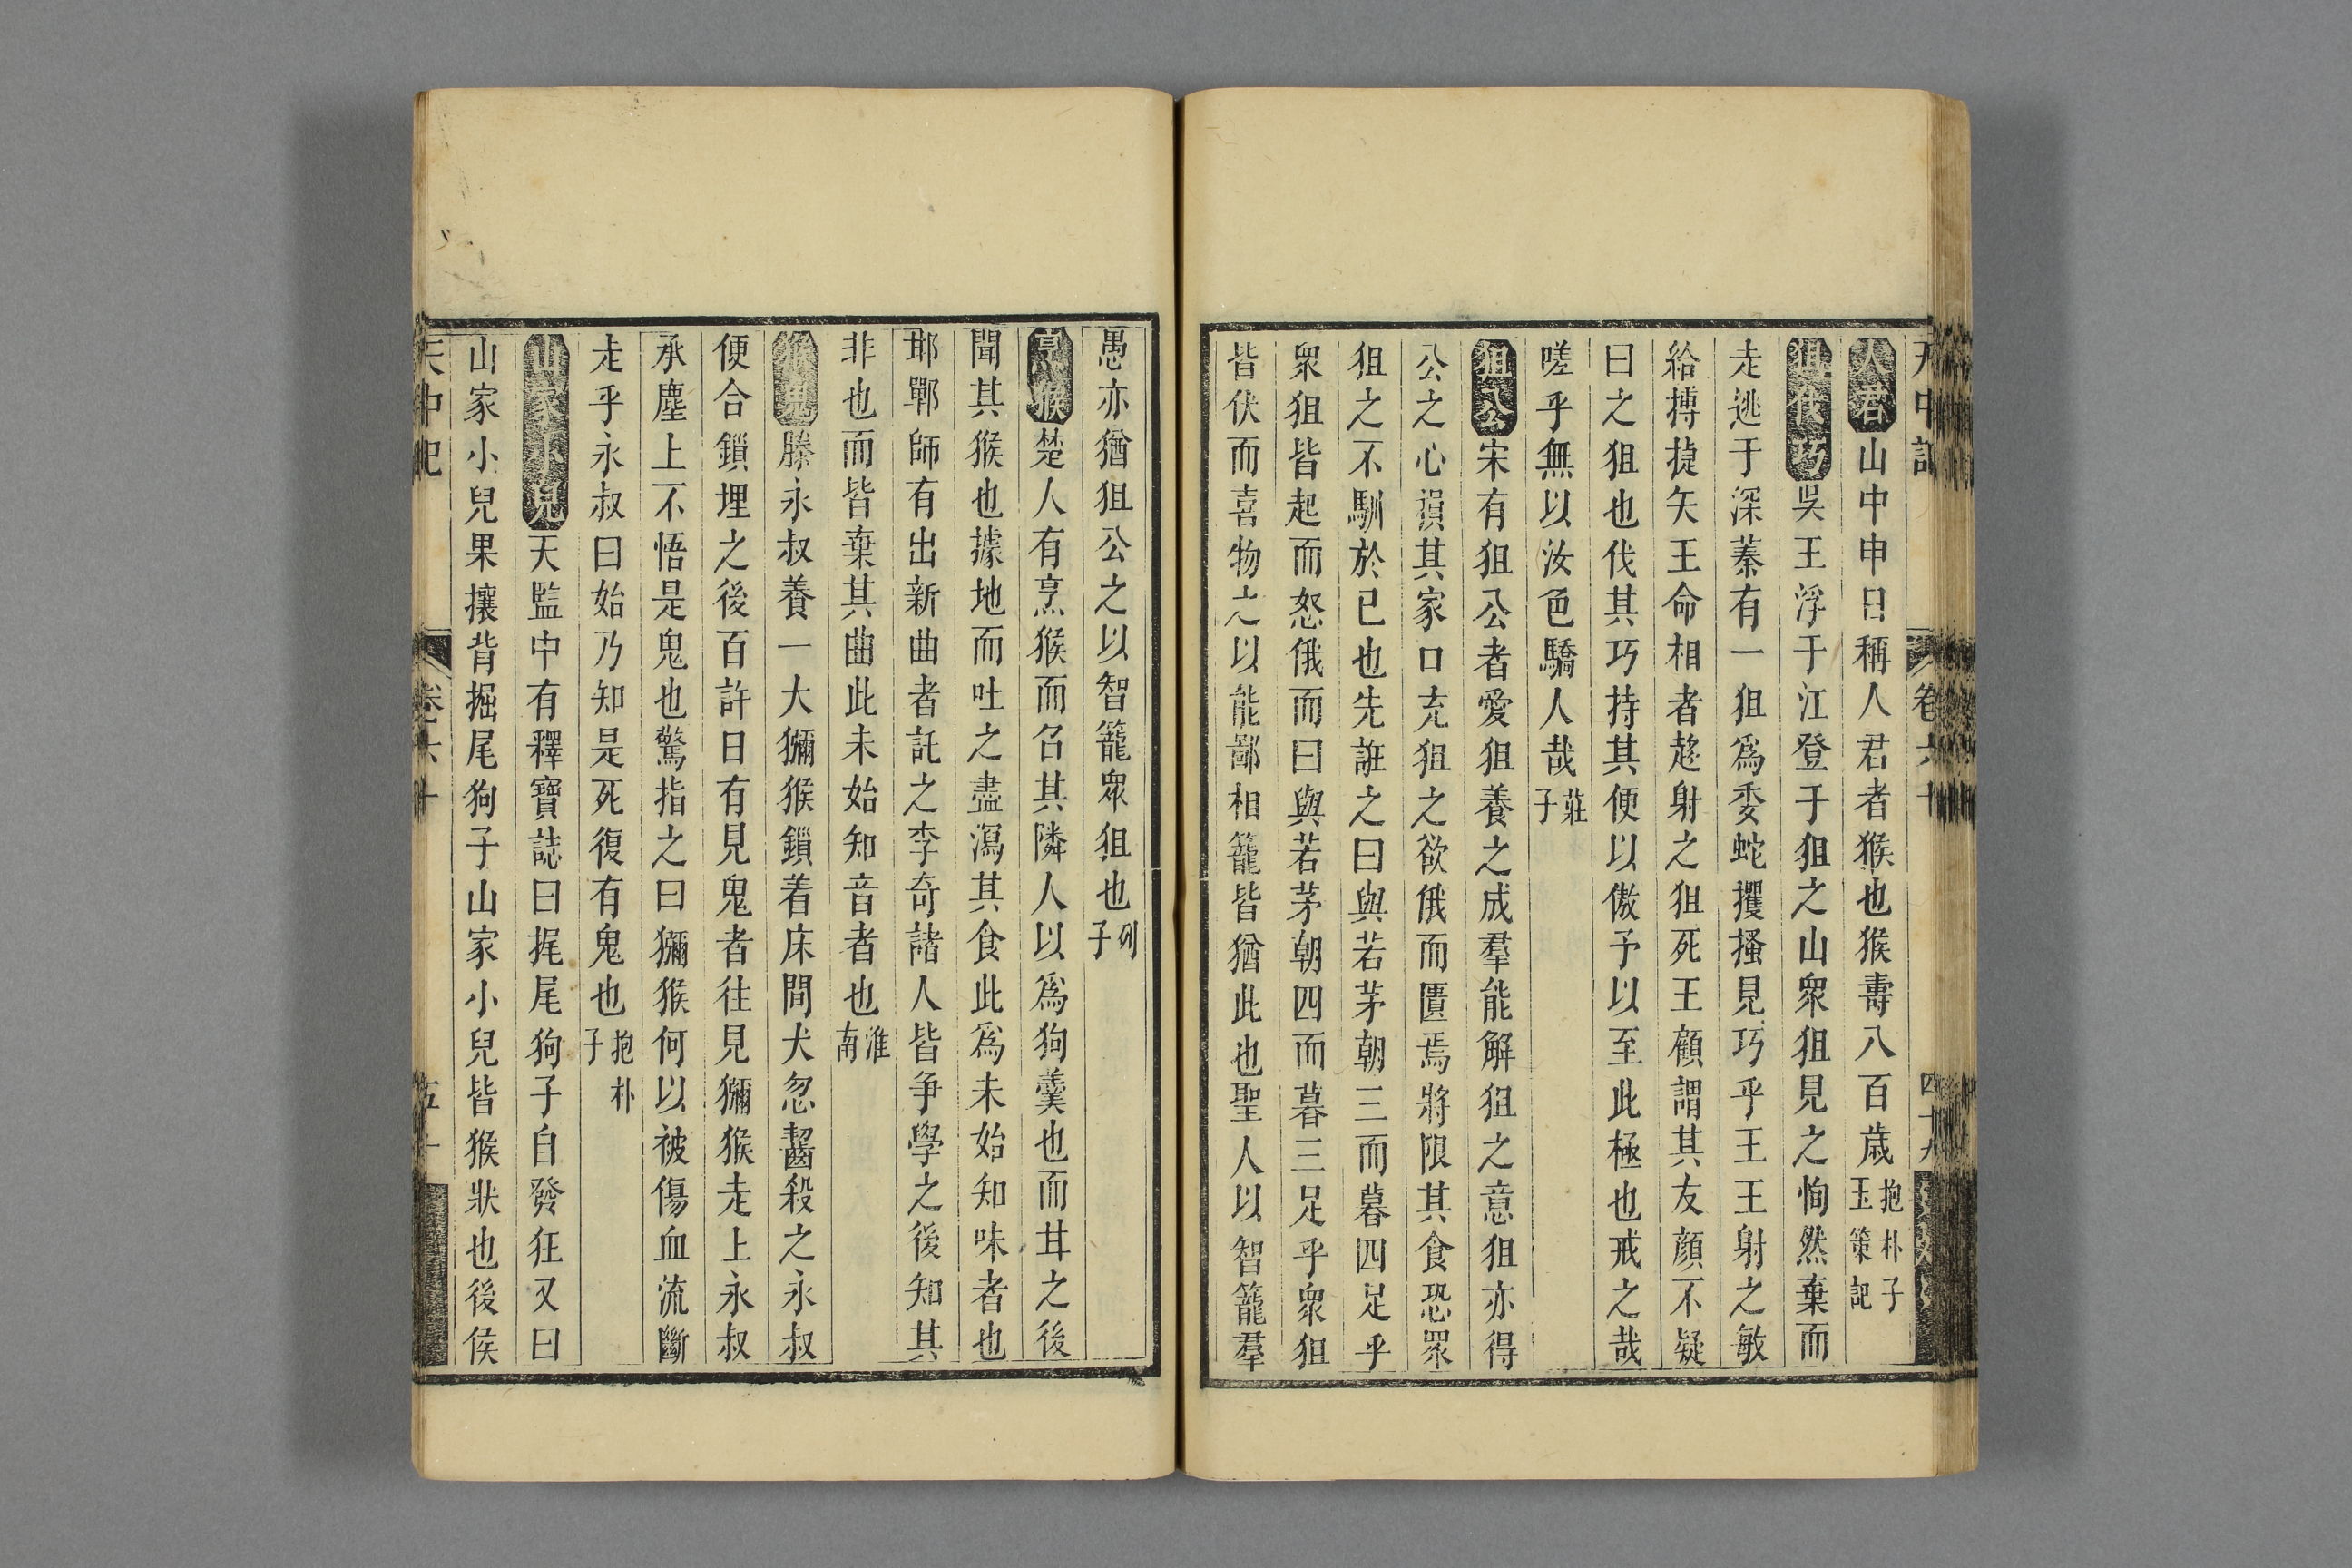 天中記 卷六十 四十九
人君山中申日稱人君者猴也猴壽八百歲抱朴子玉策記
狙伐巧吳王浮于江登于狙之山衆狙見之恂然棄而
走逃于深蓁有一狙焉委蛇攫搔見巧乎王王射之敏
給搏捷矢王命相者趍射之狙死王顧謂其友顔不疑
曰之狙也伐其巧持其便以傲予以至此極也戒之哉
嗟乎無以汝色驕人哉莊子
狙公宋有狙公者愛狙養之成羣能解狙之意狙亦得
公之心損其家口充狙之欲俄而匱焉將限其食恐眾
狙之不馴於已也先誑之曰與若茅朝三而暮四足乎
衆狙皆起而怒俄而曰與若茅朝四而暮三足乎衆狙
皆伏而喜物之以能鄙相籠皆猶此也聖人以智籠羣
愚亦猶狙公之以智籠衆狙也列子
烹猴楚人有烹猴而召其隣人以爲狗羹也而甘之後
聞其猴也據地而吐之盡瀉其食此爲未始知味者也
邯鄲師有出新曲者託之李奇諸人皆爭學之後知其
非也而皆棄其曲此未始知音者也淮南
猴鬼滕永叔養一大獼猴鎖着床間犬忽齧殺之永叔
便合鎖埋之後百許日有見鬼者往見獼猴走上永叔
承塵上不悟是鬼也驚指之曰獼猴何以被傷血流斷
走乎永叔曰始乃知是死復有鬼也抱朴子
山家小兒天監中有釋寶誌曰捤尾狗子自發狂又曰
山家小兒果攘背掘尾狗子山家小兒皆猴狀也後侯
天中記 卷六十 五十